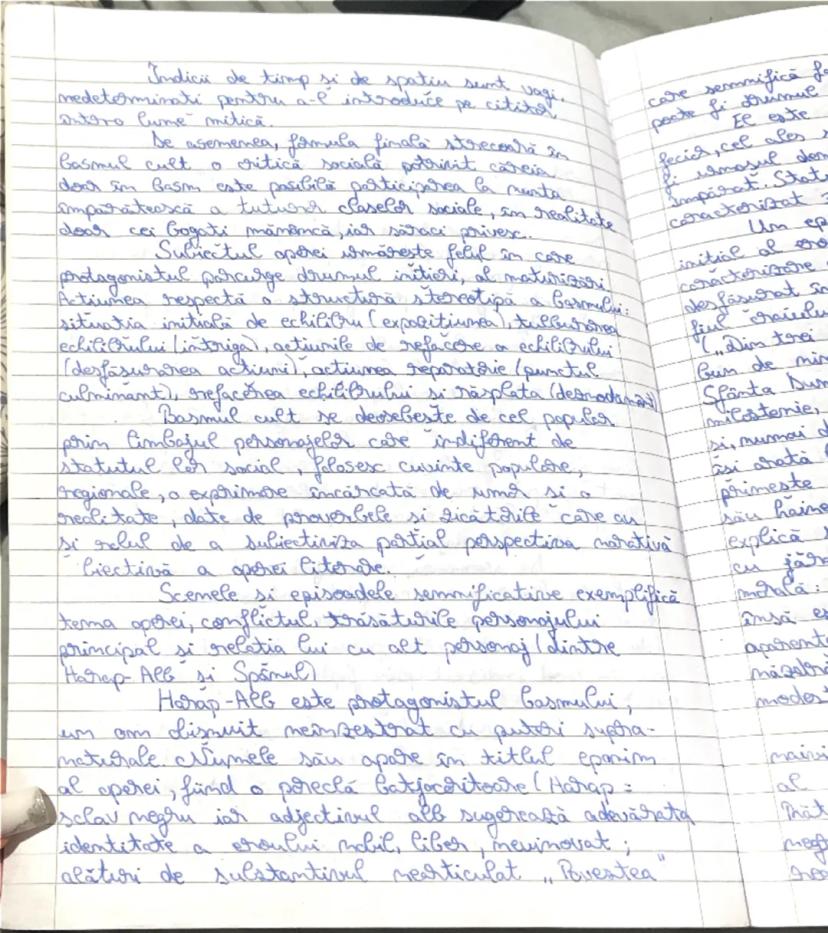 Indicii de timp si de spatiu sunt vagi,
nedeterminati pentru a-l introduce pe cititor
intro lume mitică.
De asemenea, formula finală strecoară în
basmul cult o critică socială potrivit căreia
doar în basm este posibilă participarea la nunta
împărătească a tuturor claselor sociale, în realitate
doar cei bogati mămâncă, iar săraci privesc.
Subiectul operei urmăreste felul în care
protagonistul parcurge drumul initieri, al maturizări
Actiunea respectă o structură stereotipă a basmului:
situatia initială de echilibru (expozitiunea), tulburarea
echilibrului (intriga), actiunile de refacere a echilibrului
(desfăsurarea actiuni), actiunea reparatorie (punctul
culminant), refacerea echilibrului si răsplata (deznodamânt)
Basmul cult se deosebeste de cel popular
prin limbajul personajelor care indiferent de
statutul lor social, folosesc cuvinte populare,
regionale, o exprimare încărcată de umor si o
realitate, date de proverbele si zicătorile care au
si rolul de a subiectiviza partial perspectiva narativă
biectivă a operei literare.
Scenele si episoadele semnificative exemplifică
tema operei, conflictul, trăsăturile personajului
principal si relatia lui cu alt personaj (dintre
Harap-Alb si Spânul)
Harap-Alb este protagonistul basmului,
un om obisnuit neînzestrat cu puteri supra-
naturale. Numele său apare în titlul eponim
al operei, fiind o poreclă batjocoritoare (Harap =
sclav negru iar adjectivul alb sugerează adevărata
identitate a eroului nobil, liber, nevinovat;
alături de substantivul nearticulat „Povestea"
care semnifică
poate fi drumul
El este
fecior, cel ales
fi urmasul
împărat. Stat
caracterizat
Un ep
initial al ero
caracterizare
desfăsurat în
fiul craiului
(„Din trei
bun de
Sfânta Dum
milostenie,
si, numai d
îsi arată
primeste
său haine
explică
cu jăra
morală:
însă es
aparent
măzări
modes
naivi
al
Înăt
neg